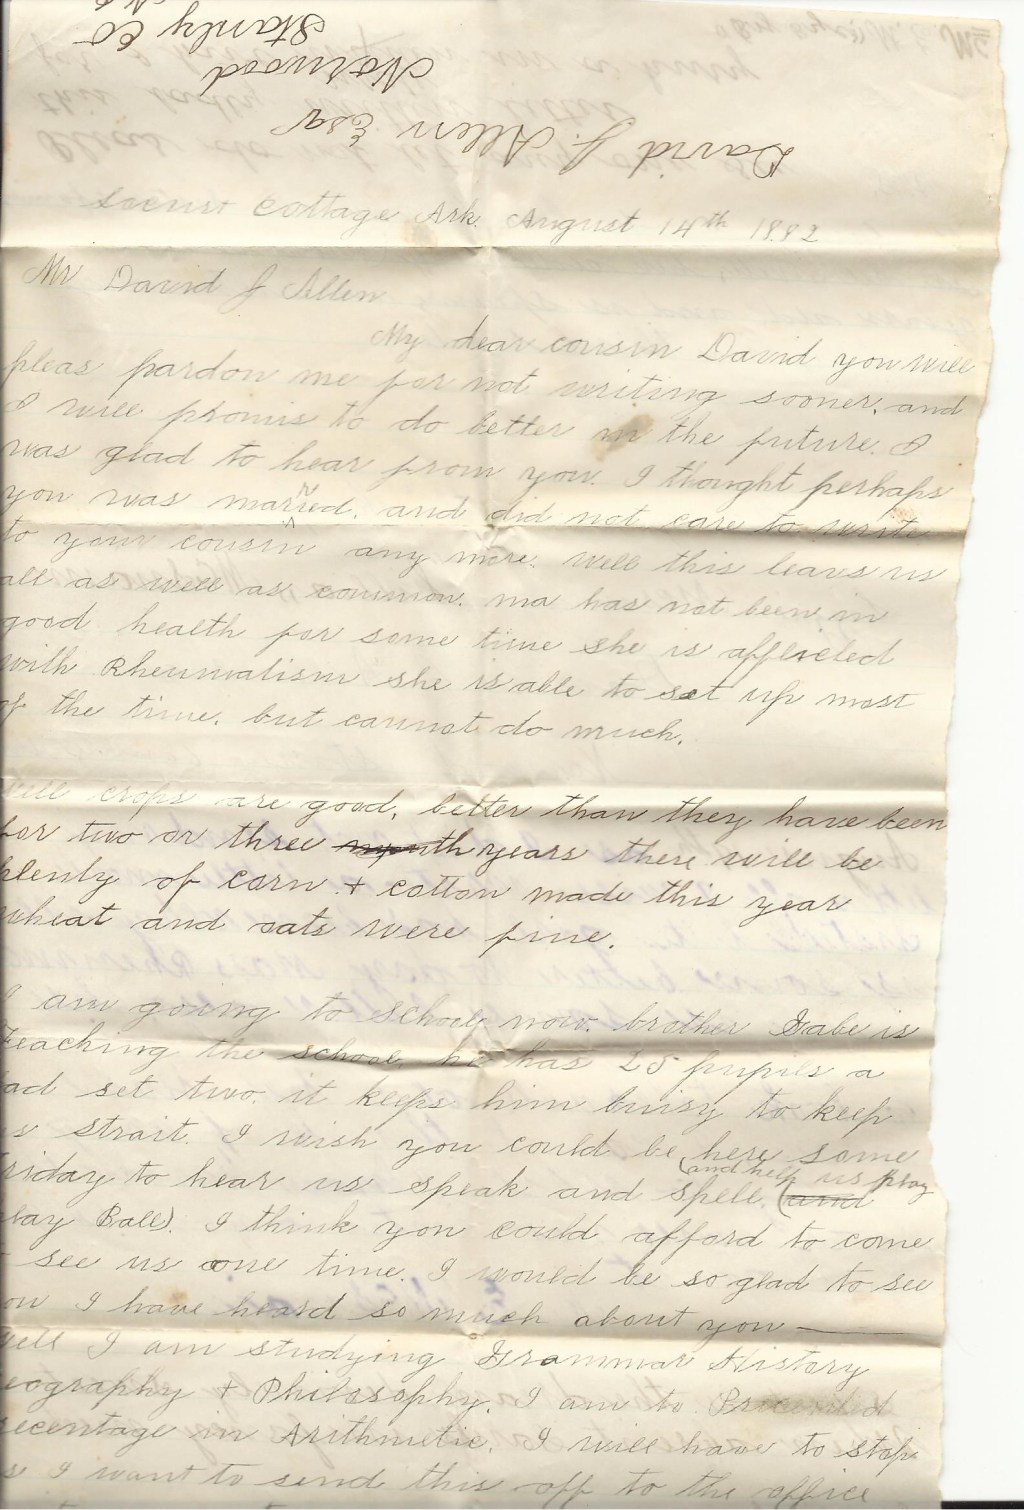 David J. Allen Esqr
Norwood
Stanly Co
Locust Cottage Ark. August 14th 1882
Mr David J Allen
My dear cousin David you will
pleas pardon me for not writing sooner, and
I will promis to do better in the future. I
was glad to hear from you. I thought perhaps
you was married. and did not care to write
to your cousin any more. well this leavs us
all as well as common. ma has not been in
good health for some time she is afflicted
with Rheumatism she is able to set up most
of the time. but cannot do much.
well crops are good, better than they have been
for two or three month years there will be
plenty of corn + cotton made this year
wheat and oats were fine.
I am going to school now. brother Gabe is
teaching the school, he has 25 pupils a
bad set two. it keeps him buisy to keep
us strait. I wish you could be here some
friday to hear us speak and spell. (and help us play and
play Ball). I think you could afford to come
see us one time. I would be so glad to see
you I have heard so much about you —
well I am studying Grammar History
eography + Philosophy. I am to
recentage in Arithmetic. I will have to stop
as I want to send this off to the office